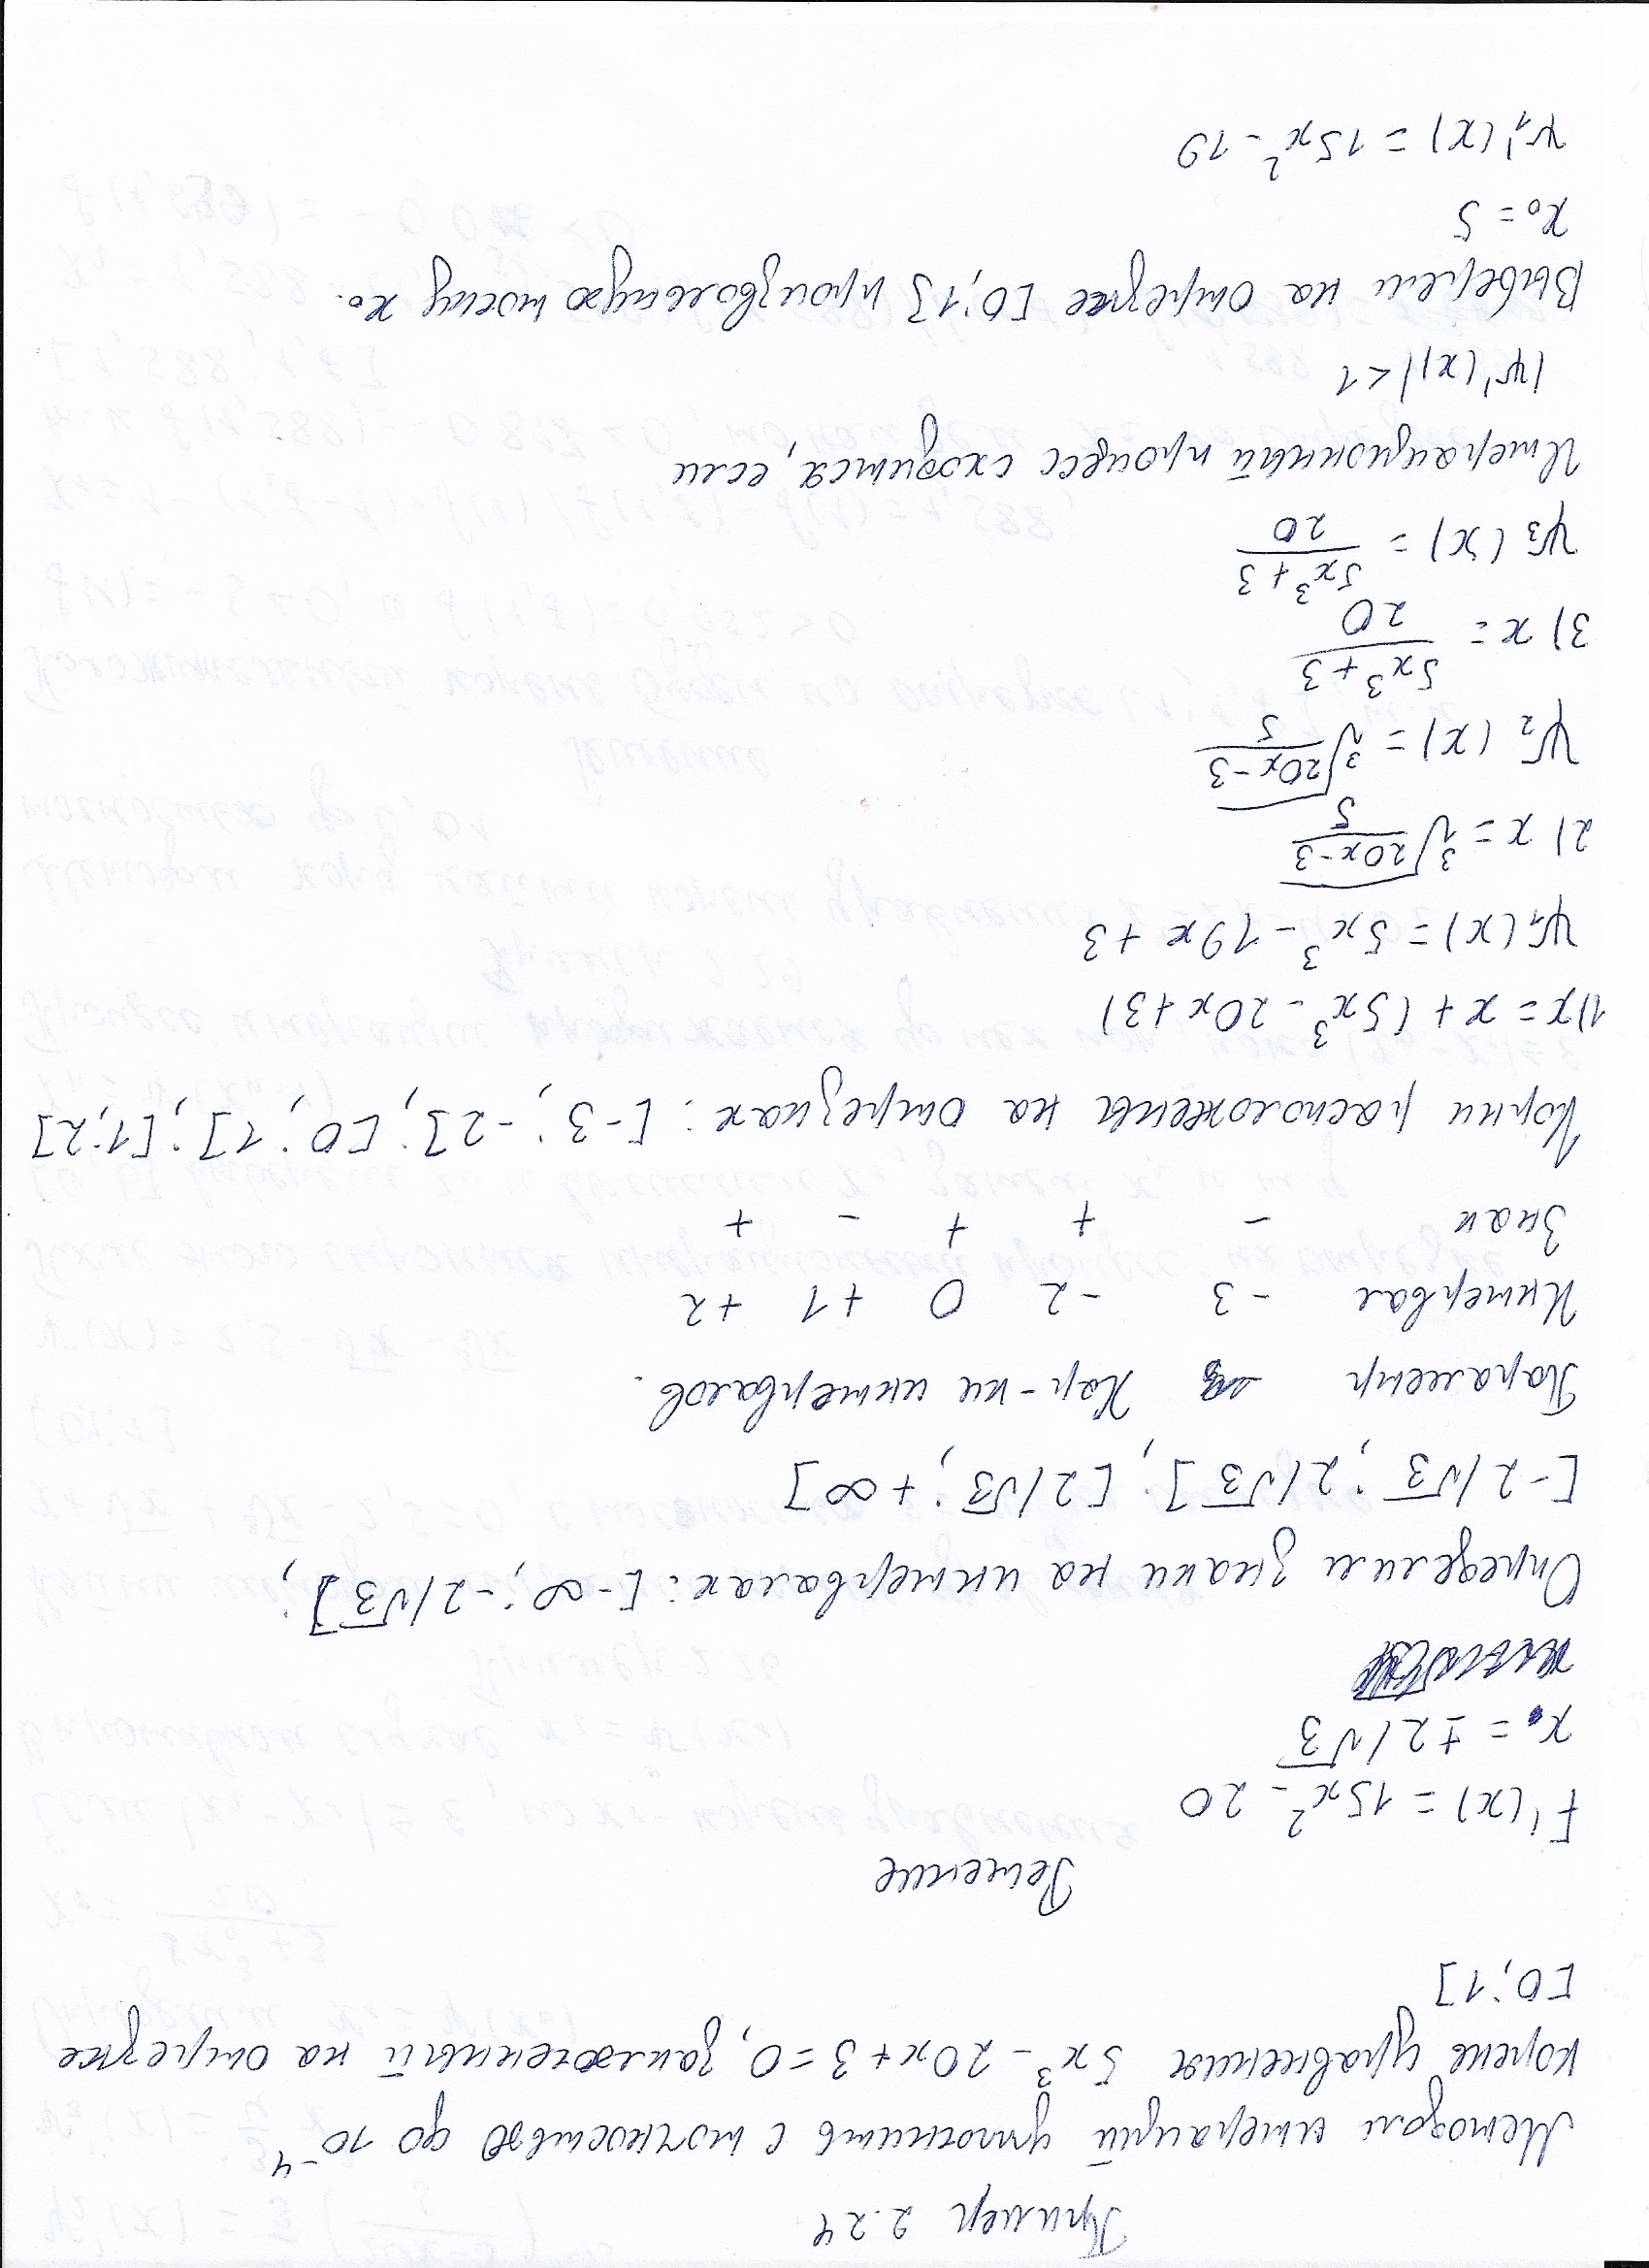 Пример 2.24
Методом итераций уточнить с точностью до 10⁻⁴
корень уравнения 5x³ - 20x + 3 = 0, заключенный на отрезке
[0; 1]
Решение
F'(x) = 15x² - 20
x. = ±2/√3
Определим знаки на интервалах: [-∞; -2/√3];
[-2/√3; 2/√3]; [2/√3; +∞]
Параметр Хар-ки интервалов.
Интервал -3 -2 0 +1 +2
Знак - + + - +
Корни расположены на отрезках: [-3; -2]; [0; 1]; [1; 2]
1) x = x + (5x³ - 20x + 3)
ψ₁(x) = 5x³ - 19x + 3
2) x = ∛((20x-3)/5)
ψ₂(x) = ∛((20x-3)/5)
3) x = (5x³+3)/20
ψ₃(x) = (5x³+3)/20
Итерационный процесс сходится, если
|ψ'(x)| < 1
Выберем на отрезке [0; 1] произвольную точку x₀.
x₀ = 5
ψ₁'(x) = 15x² - 19